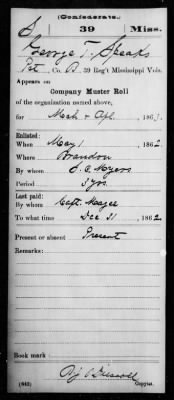 (Confederate.)
S 39 Miss.
George T. Speaks
Pvt, Co. B, 39 Reg't Mississippi Vols.
Appears on
Company Muster Roll
of the organization named above,
for Mch & Apl, 1863.
Enlisted:
When May 1, 1862
Where Brandon
By whom Myers
Period 3 yrs
Last paid:
By whom Capt. Magee
To what time Dec 31, 1862
Present or absent Present
Remarks:
Book mark:
(642) Copyist.